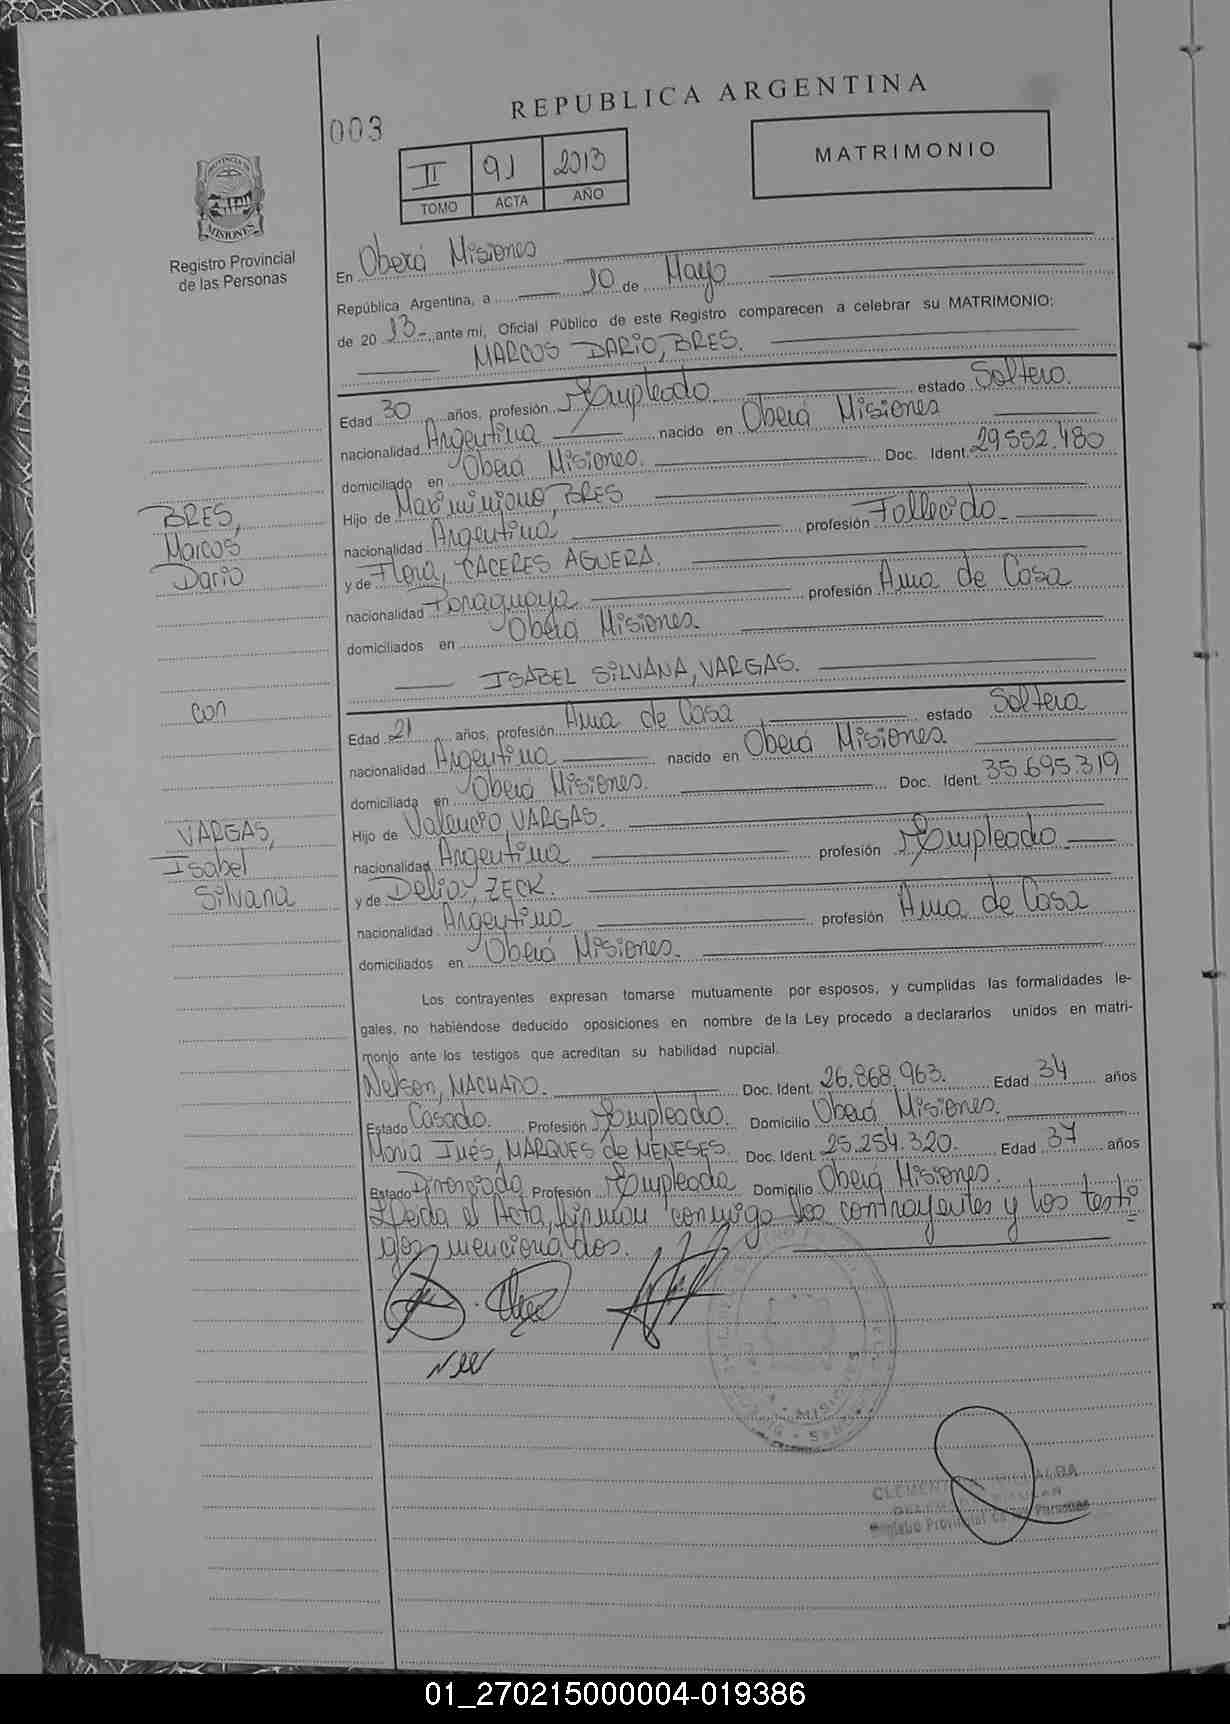 REPUBLICA ARGENTINA
003
II 91 2013
TOMO ACTA AÑO
MATRIMONIO
PROVINCIA DE
MISIONES
Registro Provincial
de las Personas
En Oberá Misiones
República Argentina, a 10 de Mayo
de 2013-, ante mí, Oficial Público de este Registro comparecen a celebrar su MATRIMONIO:
MARCOS DARIO, BRES.
Edad 30 años, profesión Empleado estado Soltero.
nacionalidad Argentina nacido en Oberá Misiones
domiciliado en Oberá Misiones. Doc. Ident. 29.552.480
Hijo de Maximiniano, BRES
nacionalidad Argentina profesión Fallecido
y de Flora, CACERES AGUERA.
nacionalidad Paraguaya profesión Ama de Casa
domiciliados en Oberá Misiones.
BRES,
Marcos
Dario
con
VARGAS,
Isabel
Silvana
ISABEL SILVANA, VARGAS.
Edad 21 años, profesión Ama de Casa estado Soltera
nacionalidad Argentina nacido en Oberá Misiones
domiciliada en Oberá Misiones. Doc. Ident. 35.695.319
Hijo de Valencio, VARGAS.
nacionalidad Argentina profesión Empleado
y de Delia, ZECK.
nacionalidad Argentina profesión Ama de Casa
domiciliados en Oberá Misiones.
Los contrayentes expresan tomarse mutuamente por esposos, y cumplidas las formalidades le-
gales, no habiéndose deducido oposiciones en nombre de la Ley procedo a declararlos unidos en matri-
monio ante los testigos que acreditan su habilidad nupcial.
Nelson, MACHADO. Doc. Ident. 26.868.963. Edad 34 años
Estado Casado. Profesión Empleado. Domicilio Oberá Misiones.
Maria Inés, MARQUES de MENESES. Doc. Ident. 25.254.320. Edad 37 años
Estado Divorciada Profesión Empleada Domicilio Oberá Misiones.
Leída el Acta, firman conmigo los contrayentes y los testi
gos mencionados.
MISIONES
Registro Provincial de las Personas
01_270215000004-019386